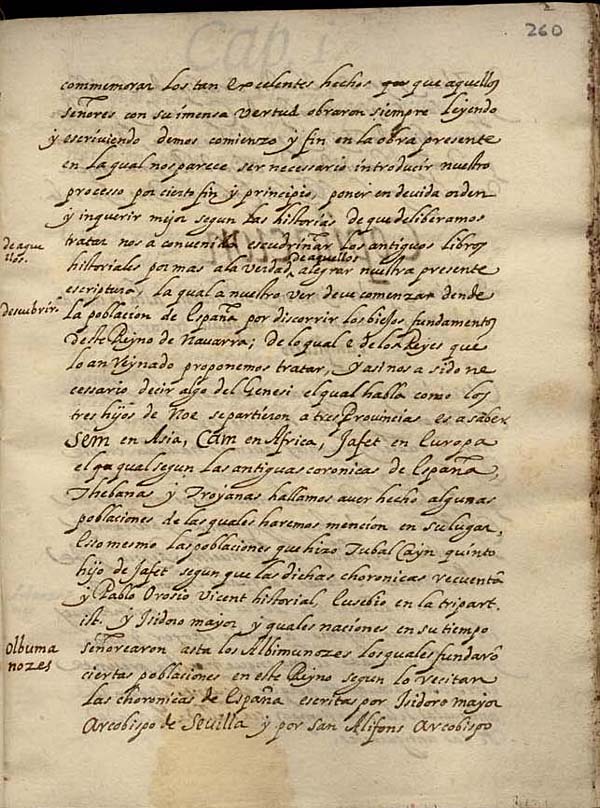 260
commemorar los tan excelentes hechos que aquellos
señores con su imensa vertud obraron siempre leyendo
y escriviendo demos comienzo y fin en la obra presente
en la qual nos parece ser necessario introducir nuestro
processo por cierto fin y principio, poner en devida orden
y inquerir mejor segun las historias de que deliberamos
de aque
llos.
tratar nos a convenido escudriñar los antiguos libros
historiales por mas a la verdad de aquellos alegrar nuestra presente
escriptura, la qual a nuestro ver deve comenzar dende
descubrir
la poblacion de España por discorrir los biejos fundamentos
deste Reyno de Navarra; de lo qual e de los Reyes que
lo an Reynado proponemos tratar, y asi nos a sido ne
cessario decir algo del Genesi el qual habla como los
tres hijos de Noe se partieron a tres Provincias es a saber
Sem en Asia, Cam en Africa, Jafet en Europa
el qual segun las antiguas coronicas de España,
Thebanas y Troyanas hallamos aver hecho algunas
poblaciones de las quales haremos mencion en su lugar,
Esso mesmo las poblaciones que hizo Tubal Cayn quinto
hijo de Jafet segun que las dichas choronicas recuentã
y Pablo Orosio Vicent historial, Eusebio en la tripart.
ist. y Isidoro mayor y quales naciones en su tiempo
olbuma
nozes
señorearon asta los Albimunozes los quales fundarõ
ciertas poblaciones en este Reyno segun lo recitan
las choronicas de España escritas por Isidoro mayor
Arcobispo de Sevilla y por san Alifons Arcobispo